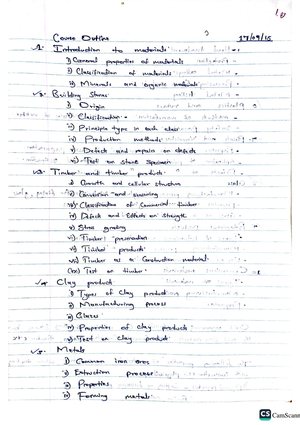 Course Outline 17/09/15
1. Introduction to materials
i) General properties of materials
ii) Classification of materials
iii) Minerals and organic materials
2. Building Stones
i) Origin
ii) Classification
iii) Principle type in each class
iv) Production methods
v) Defect and repairs on defects
vi) Test on stone specimen
3. Timber and timber products
i) Growth and cellular structure
ii) Conversion and seasoning
iii) Classification of Commercial timber
iv) Defect and Effects on strength
v) Stress grading
vi) Timber preservation
vii) Timber products
viii) Timber as a Construction material
(ix) Test on timber
4. Clay product
i) Types of Clay product
ii) Manufacturing process
iii) Glazes
iv) Properties of clay products
v) Test on Clay product
5. Metals
i) Common iron ores
ii) Extraction process
iii) Properties
iv) Forming metals
CS CamScanner